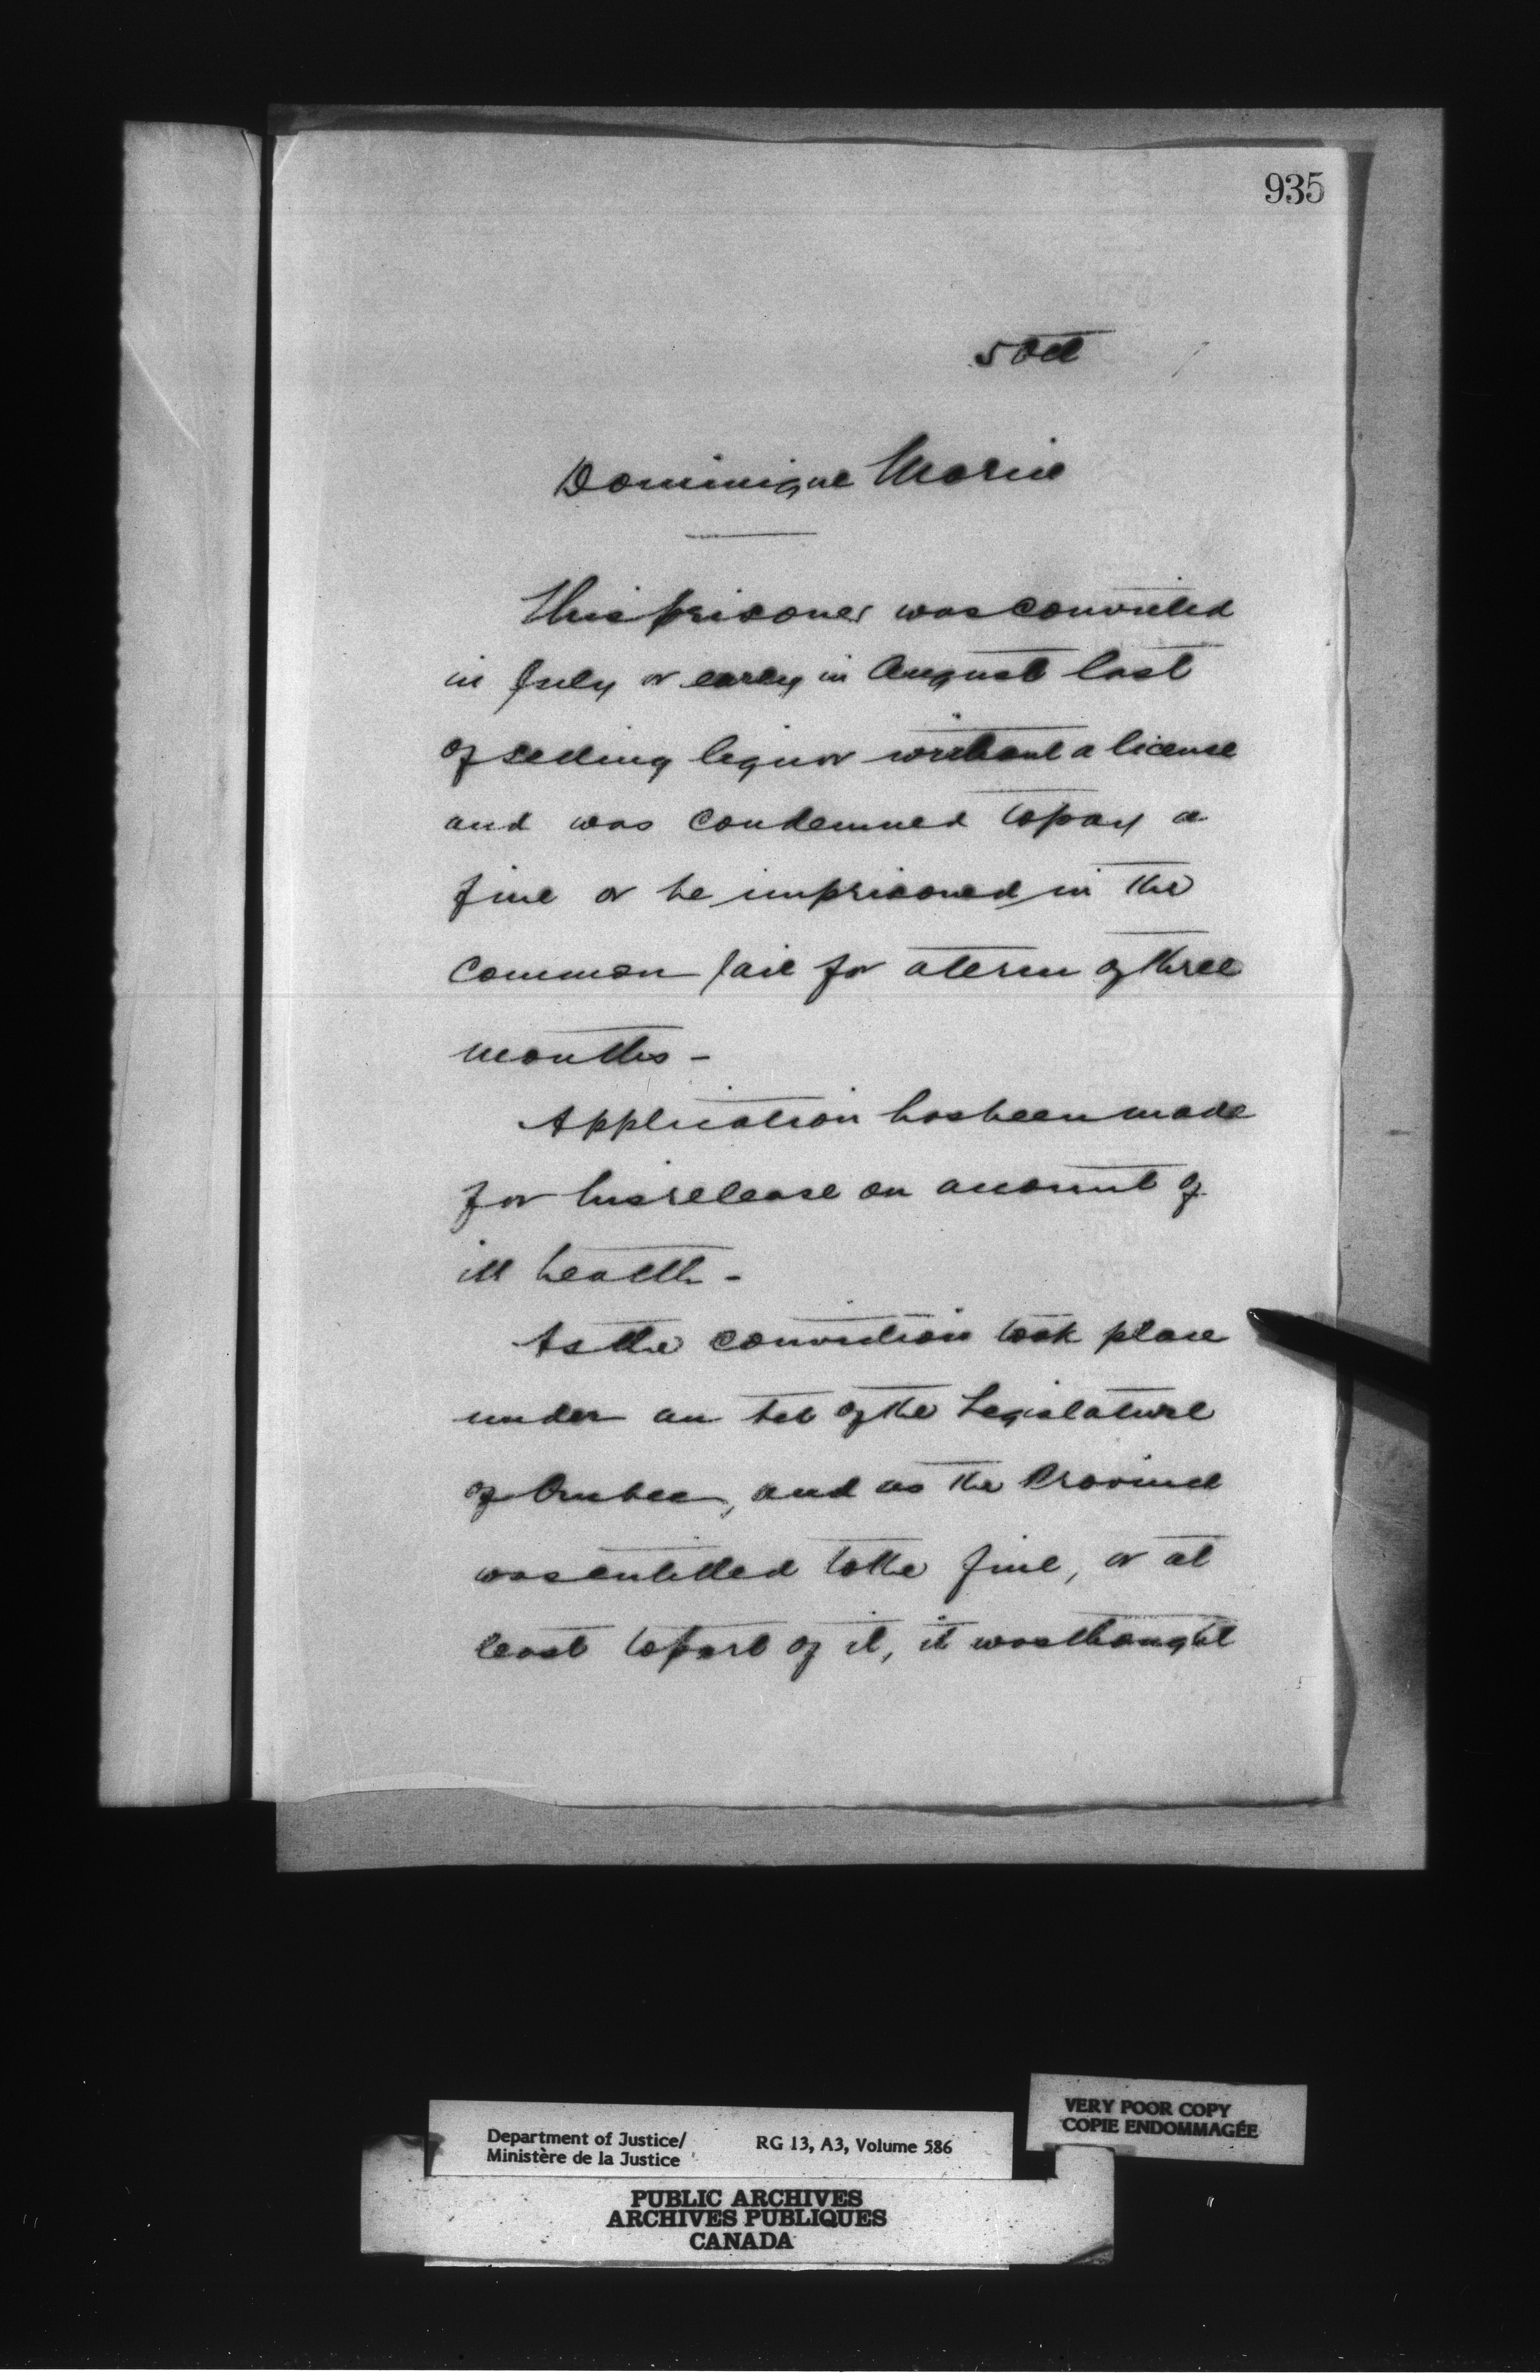 935
5 Oct
Dominique Morin
This prisoner was convicted
in July or early in August last
of selling liquor without a license
and was condemned to pay a
fine or be imprisoned in the
common jail for a term of three
months -
Application has been made
for his release on account of
ill health -
As the conviction took place
under an Act of the Legislature
of Quebec, and as the Province
was entitled to the fine, or at
least to part of it, it was thought
VERY POOR COPY
COPIE ENDOMMAGÉE
Department of Justice/
Ministère de la Justice
RG 13, A3, Volume 586
PUBLIC ARCHIVES
ARCHIVES PUBLIQUES
CANADA